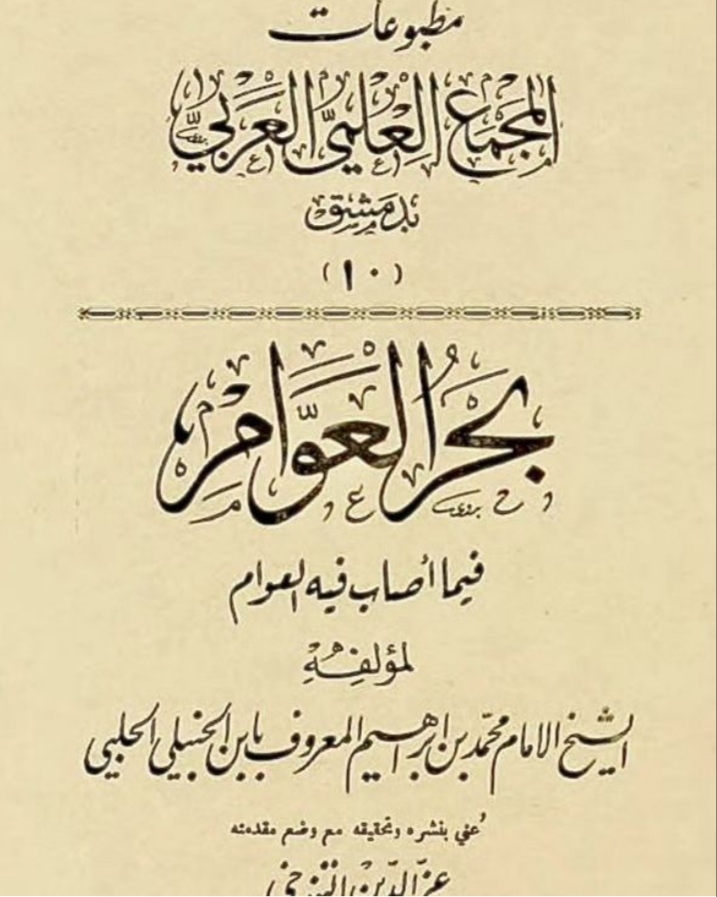 مطبوعات
المجمع العلمي العربي
بدمشق
(١٠)
بحرُ العوَّامِ
فيما أصاب فيه العوام
لمؤلفه
الشيخ الامام محمّد بن ابراهيم المعروف بابن الحنبلي الحلبي
عُني بنشره وتحقيقه مع وضع مقدمته
عزّ الدين التنوخي